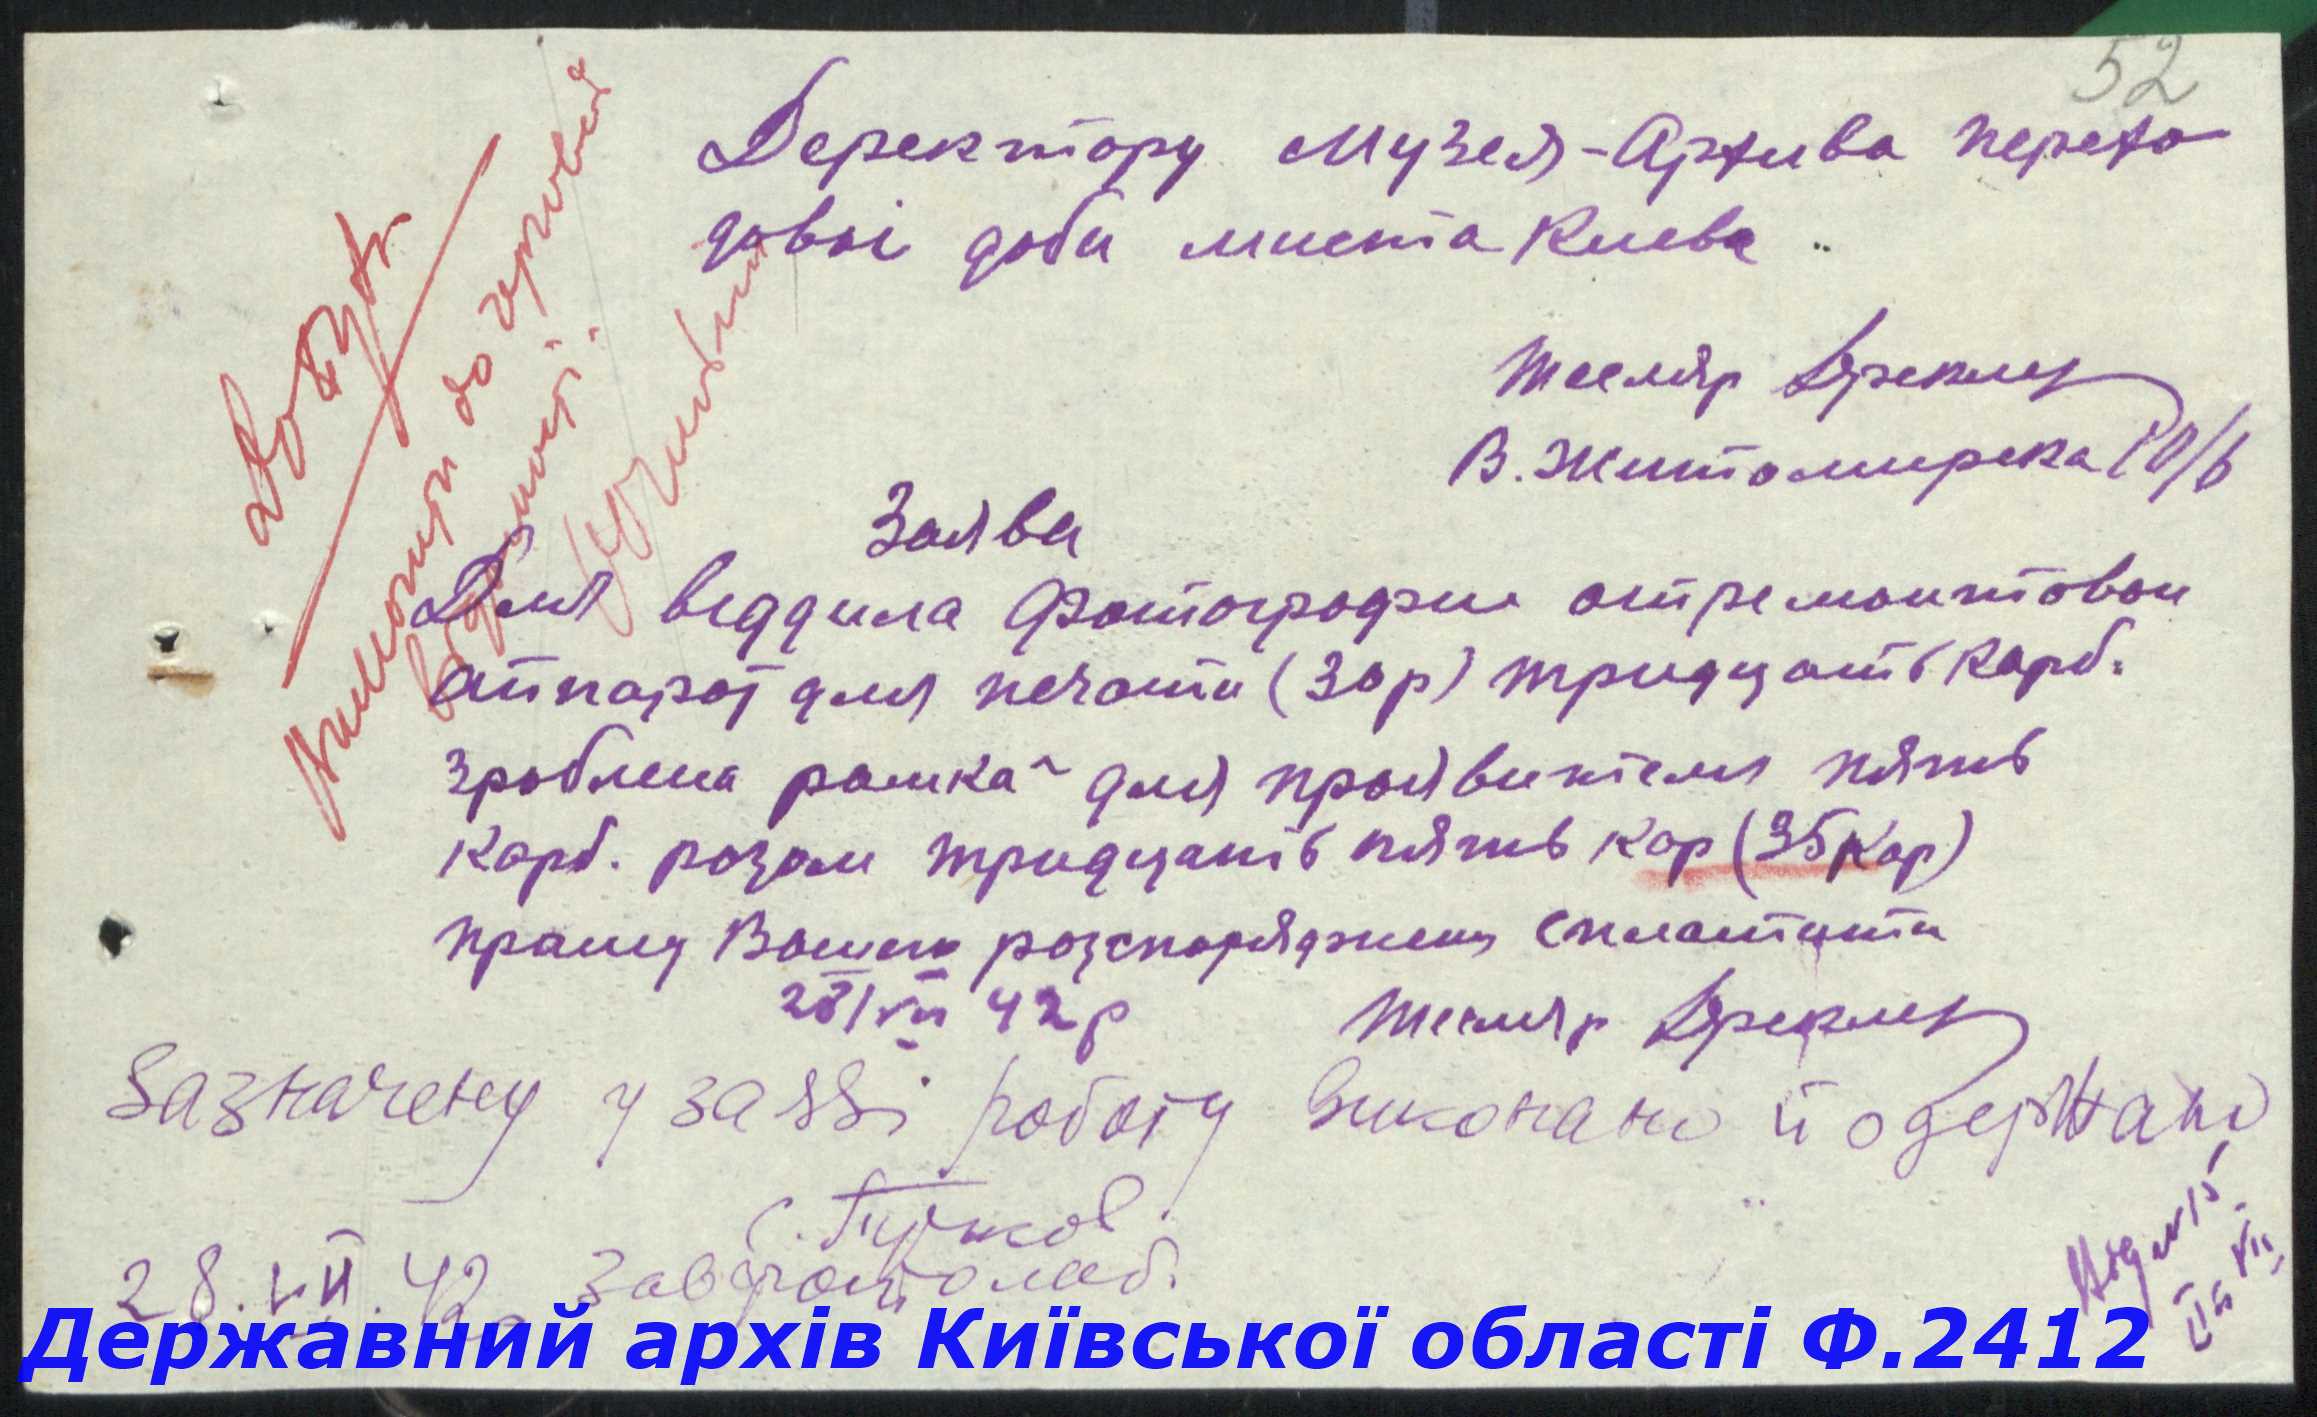 52
Деректору Музея-Архива перехо
довоі доби миста Киева
Тесляр
В. Житомирска 10/6
Заява
Для виддила Фотографии отремонтован
аппарат для печати (30 р) тридцать карб.
зроблена рамка для проявителя пять
карб. разом тридцать пять кар (35 кар)
прашу Вашого розспоряджения сплатити
28/VII 42 р
Тесляр
Зазначену у заяві роботу виконано й одержано
28.VII.42 Завфотолаб.
до
Державний архів Київської області Ф.2412